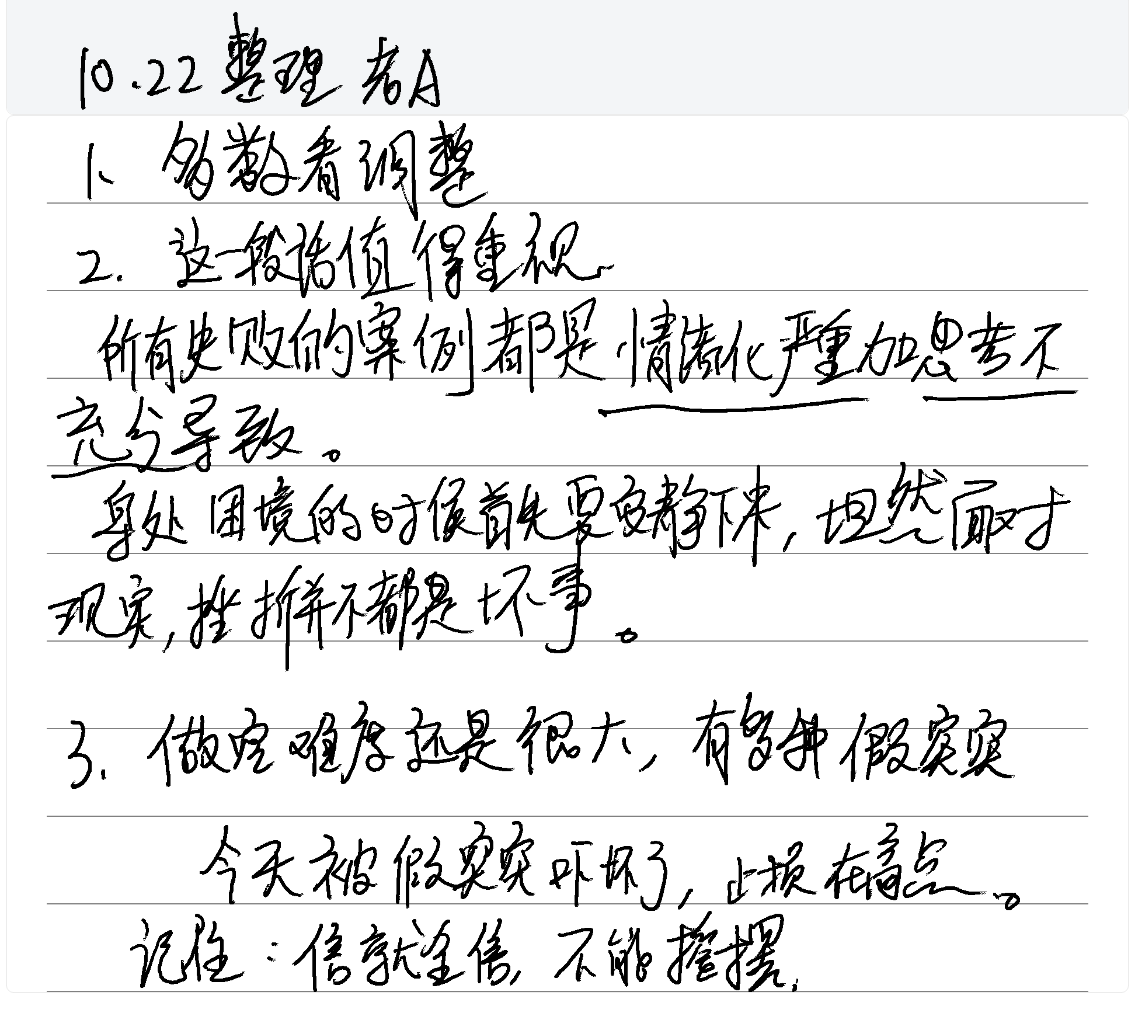 10.22 整理 者A
1、多数看调整
2. 这一段话值得重视.
所有失败的案例都是情绪化严重加思考不
充分导致。
身处困境的时候首先要安静下来,坦然面对
现实,挫折并不都是坏事。
3. 做空难度还是很大,有多种假突突
今天被假突突吓坏了,止损在高点。
记住:信就全信,不能摇摆.